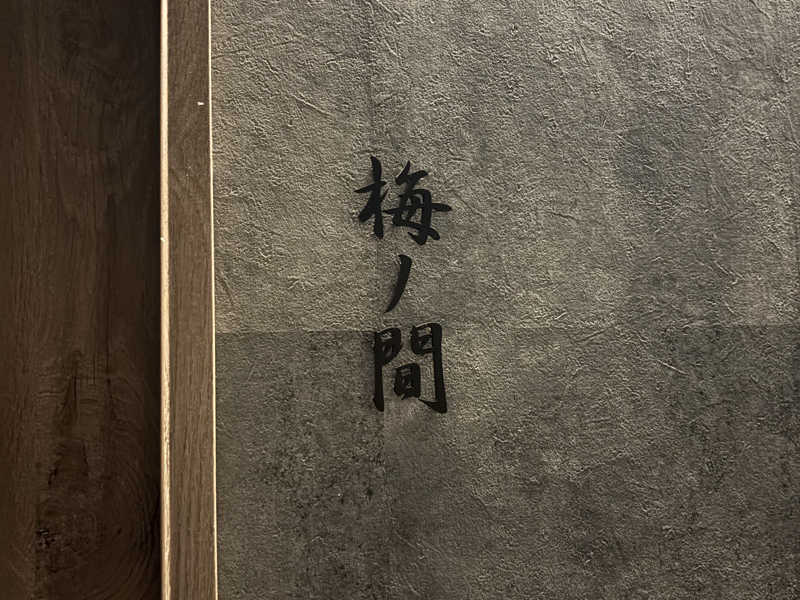 梅ノ間